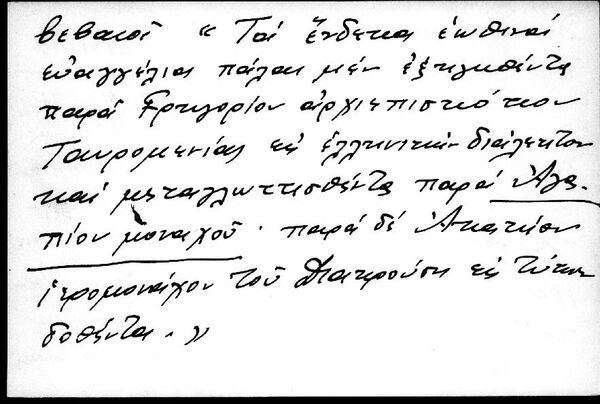 βεβαιοῖ "Τὰ ἕνδεκα ἑωθινὰ
εὐαγγέλια πάλαι μὲν ἐξηγηθέντα
παρὰ Γρηγορίου ἀρχιεπισκόπου
Ταυρομενίας εἰς ἑλληνικὴν διάλεκτον
καὶ μεταγλωττισθέντα παρὰ Ἀγα-
πίου μοναχοῦ. παρὰ δὲ Ἀκακίου
ἱερομονάχου τοῦ Διακρούση εἰς τύπον
δοθέντα."